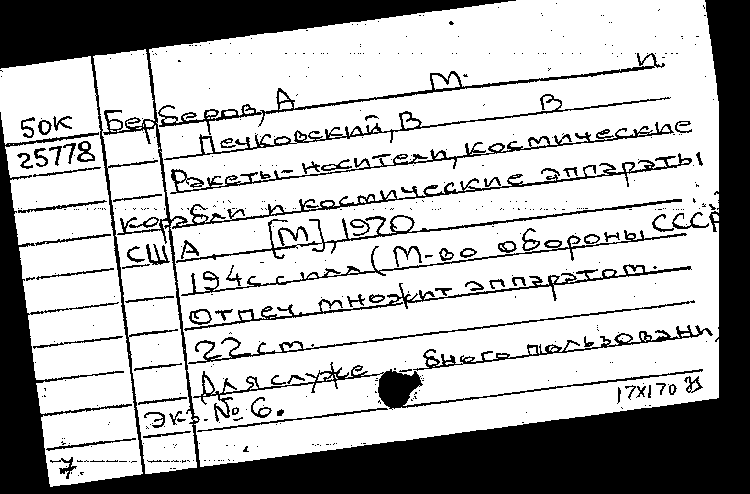 50к Берберов, А М. п.
25778 Печковский, В В
Ракеты-носители, космические
корабли и космические аппараты
США. [М], 1970.
194с с илл (М-во обороны СССР
Отпеч. множит аппаратом.
22 см.
Для служе бного пользовани
экз. № 6.
17X170
7.